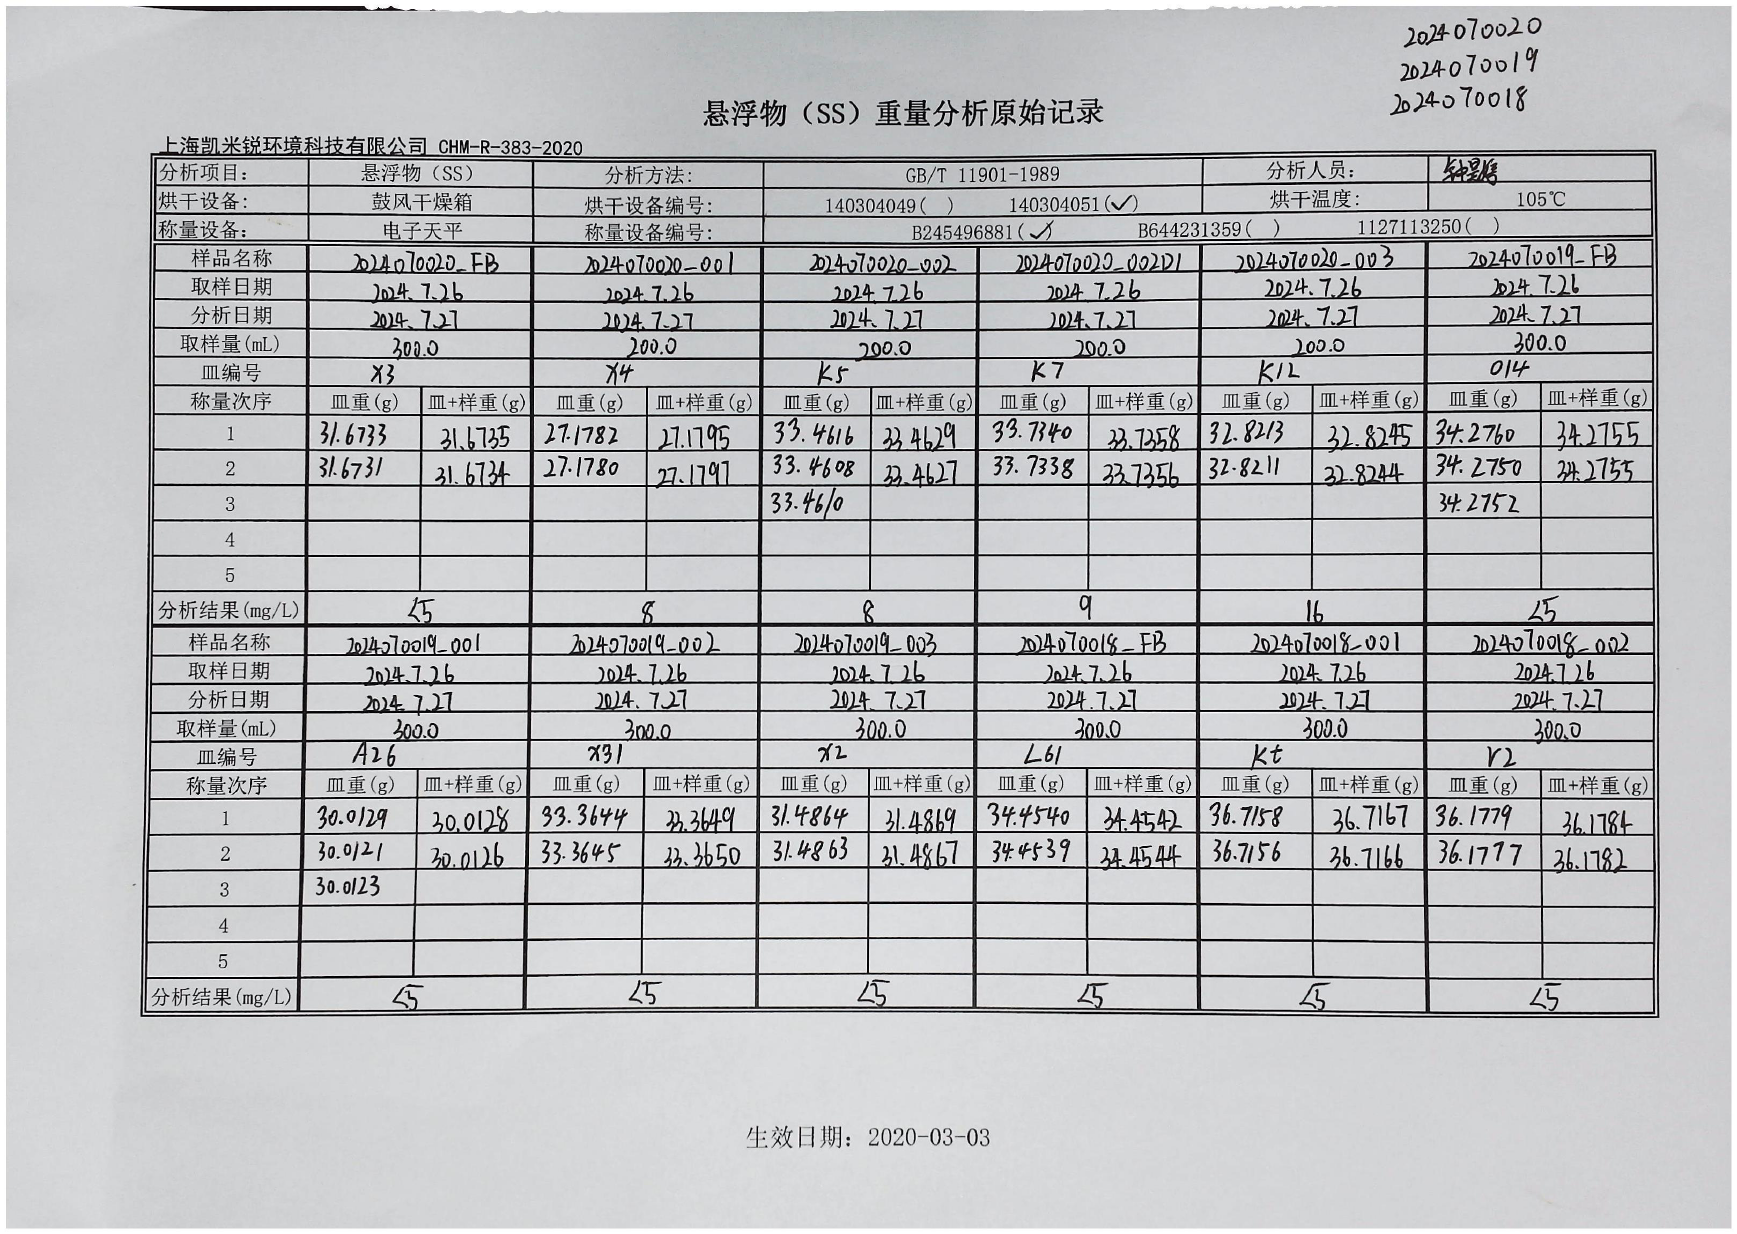 2024070020
2024070019
2024070018
悬浮物（SS）重量分析原始记录
上海凯米锐环境科技有限公司 CHM-R-383-2020
分析项目： 悬浮物（SS） 分析方法： GB/T 11901-1989 分析人员：
烘干设备： 鼓风干燥箱 烘干设备编号： 140304049( ) 140304051(✓) 烘干温度： 105℃
称量设备： 电子天平 称量设备编号： B245496881(✓) B644231359( ) 1127113250( )
样品名称 2024070020_FB 2024070020_001 2024070020_002 2024070020_002D1 2024070020_003 2024070019_FB
取样日期 2024.7.26 2024.7.26 2024.7.26 2024.7.26 2024.7.26 2024.7.26
分析日期 2024.7.27 2024.7.27 2024.7.27 2024.7.27 2024.7.27 2024.7.27
取样量(mL) 300.0 200.0 200.0 200.0 200.0 300.0
皿编号 X3 X4 K5 K7 K12 014
称量次序 皿重(g) 皿+样重(g) 皿重(g) 皿+样重(g) 皿重(g) 皿+样重(g) 皿重(g) 皿+样重(g) 皿重(g) 皿+样重(g) 皿重(g) 皿+样重(g)
1 31.6733 31.6735 27.1782 27.1795 33.4616 33.4629 33.7340 33.7358 32.8213 32.8245 34.2760 34.2755
2 31.6731 31.6734 27.1780 27.1797 33.4608 33.4627 33.7338 33.7356 32.8211 32.8244 34.2750 34.2755
3 33.4610 34.2752
4
5
分析结果(mg/L) <5 8 8 9 16 <5
样品名称 2024070019_001 2024070019_002 2024070019_003 2024070018_FB 2024070018_001 2024070018_002
取样日期 2024.7.26 2024.7.26 2024.7.26 2024.7.26 2024.7.26 2024.7.26
分析日期 2024.7.27 2024.7.27 2024.7.27 2024.7.27 2024.7.27 2024.7.27
取样量(mL) 300.0 300.0 300.0 300.0 300.0 300.0
皿编号 A26 X31 X2 L61 Kt V2
称量次序 皿重(g) 皿+样重(g) 皿重(g) 皿+样重(g) 皿重(g) 皿+样重(g) 皿重(g) 皿+样重(g) 皿重(g) 皿+样重(g) 皿重(g) 皿+样重(g)
1 30.0129 30.0128 33.3644 33.3649 31.4864 31.4869 34.4540 34.4542 36.7158 36.7167 36.1779 36.1784
2 30.0121 30.0126 33.3645 33.3650 31.4863 31.4867 34.4539 34.4544 36.7156 36.7166 36.1777 36.1782
3 30.0123
4
5
分析结果(mg/L) <5 <5 <5 <5 <5 <5
生效日期：2020-03-03